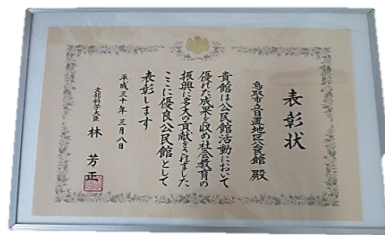 表彰状
鳥取市立日置地区公民館 殿
貴館は公民館活動において
優れた成果を収め社会教育の
振興に多大の貢献をされました
ここに優良公民館として
表彰します
平成三十年三月八日
文部科学大臣 林 芳正